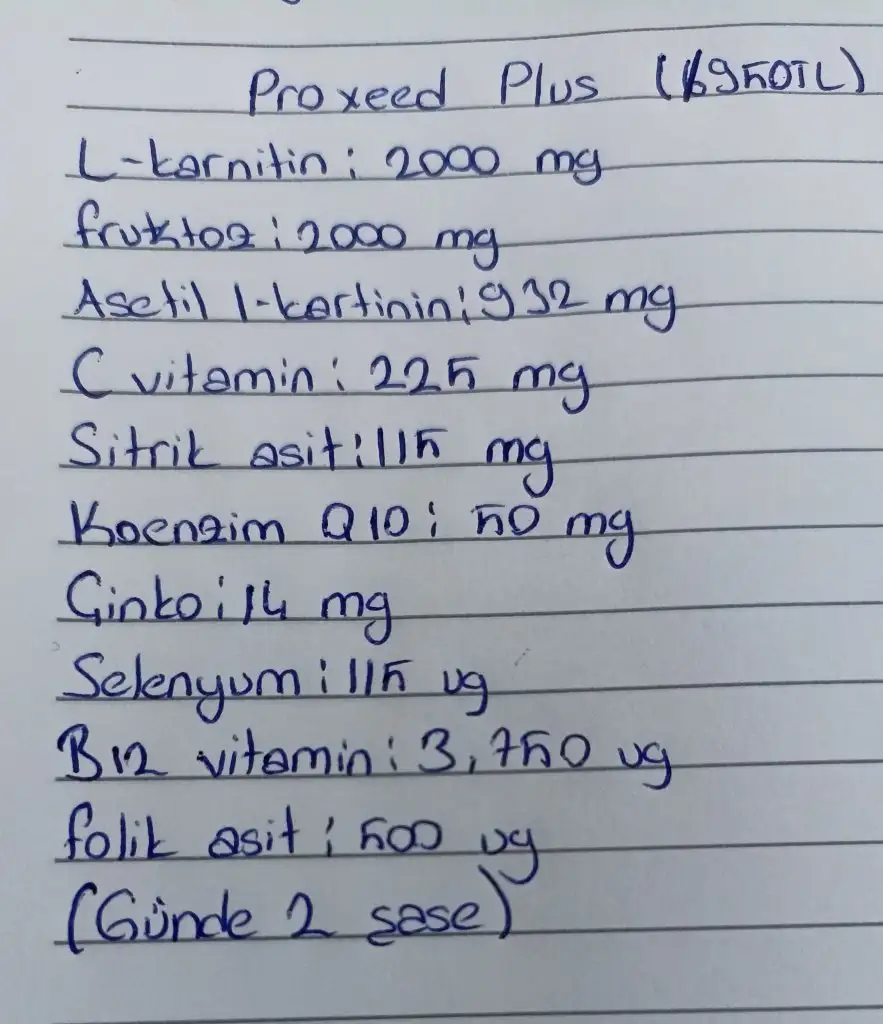 Proxeed Plus (6950TL)
L-karnitin: 2000 mg
fruktoz: 2000 mg
Asetil l-kartinin: 932 mg
C vitamin: 225 mg
Sitrik asit: 115 mg
Koenzim Q10: 50 mg
Ginko: 14 mg
Selenyum: 115 ug
B12 vitamin: 3,750 ug
folik asit: 500 ug
(Günde 2 şase)